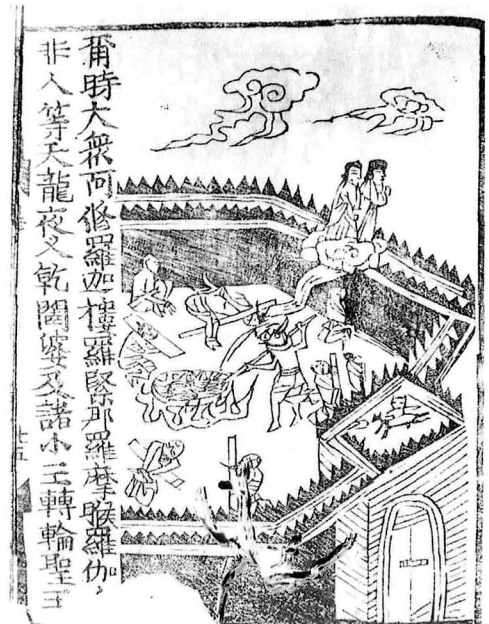 爾時大衆阿修羅迦樓羅緊那羅摩睺羅伽
非人等天龍夜叉乾闥婆及諸小王轉輪聖王
廿五